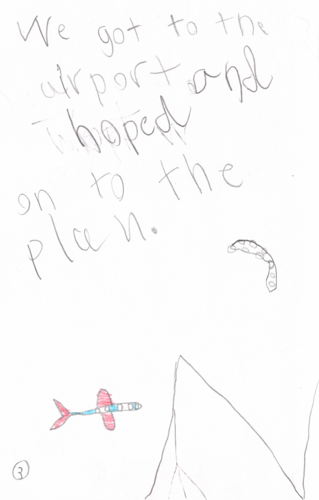 We got to the
airport and
hoped
on to the
plan.
3